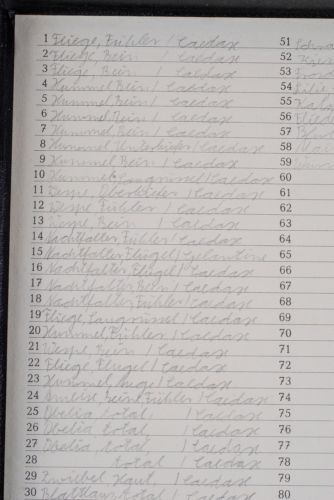 1 Fliege, Fühler / Caedax 51
2 Fliege, Bein / Caedax 52
3 Fliege, Bein / Caedax 53
4 Hummel Bein / Caedax 54
5 Hummel Bein / Caedax 55
6 Hummel Bein / Caedax 56
7 Hummel Bein / Caedax 57
8 Hummel Unterkiefer / Caedax 58
9 Hummel Bein / Caedax 59
10 Hummel, Saugrüssel / Caedax 60
11 Wespe Oberkiefer / Caedax 61
12 Wespe Fühler / Caedax 62
13 Wespe, Bein / Caedax 63
14 Nachtfalter, Fühler / Caedax 64
15 Nachtfalter, Flügel / Gelatine 65
16 Nachtfalter, Flügel / Caedax 66
17 Nachtfalter Bein / Caedax 67
18 Nachtfalter Fühler / Caedax 68
19 Fliege, Saugrüssel / Caedax 69
20 Hummel, Fühler / Caedax 70
21 Wespe, Bein / Caedax 71
22 Fliege, Flügel / Caedax 72
23 Hummel, Auge / Caedax 73
24 Ameise, Bein, Fühler / Caedax 74
25 Obelia total, / Caedax 75
26 Obelia total / Caedax 76
27 Obelia, total, / Caedax 77
28 total / Caedax 78
29 Zwiebel Haut, / Caedax 79
30 Blattlaus, total / Caedax 80